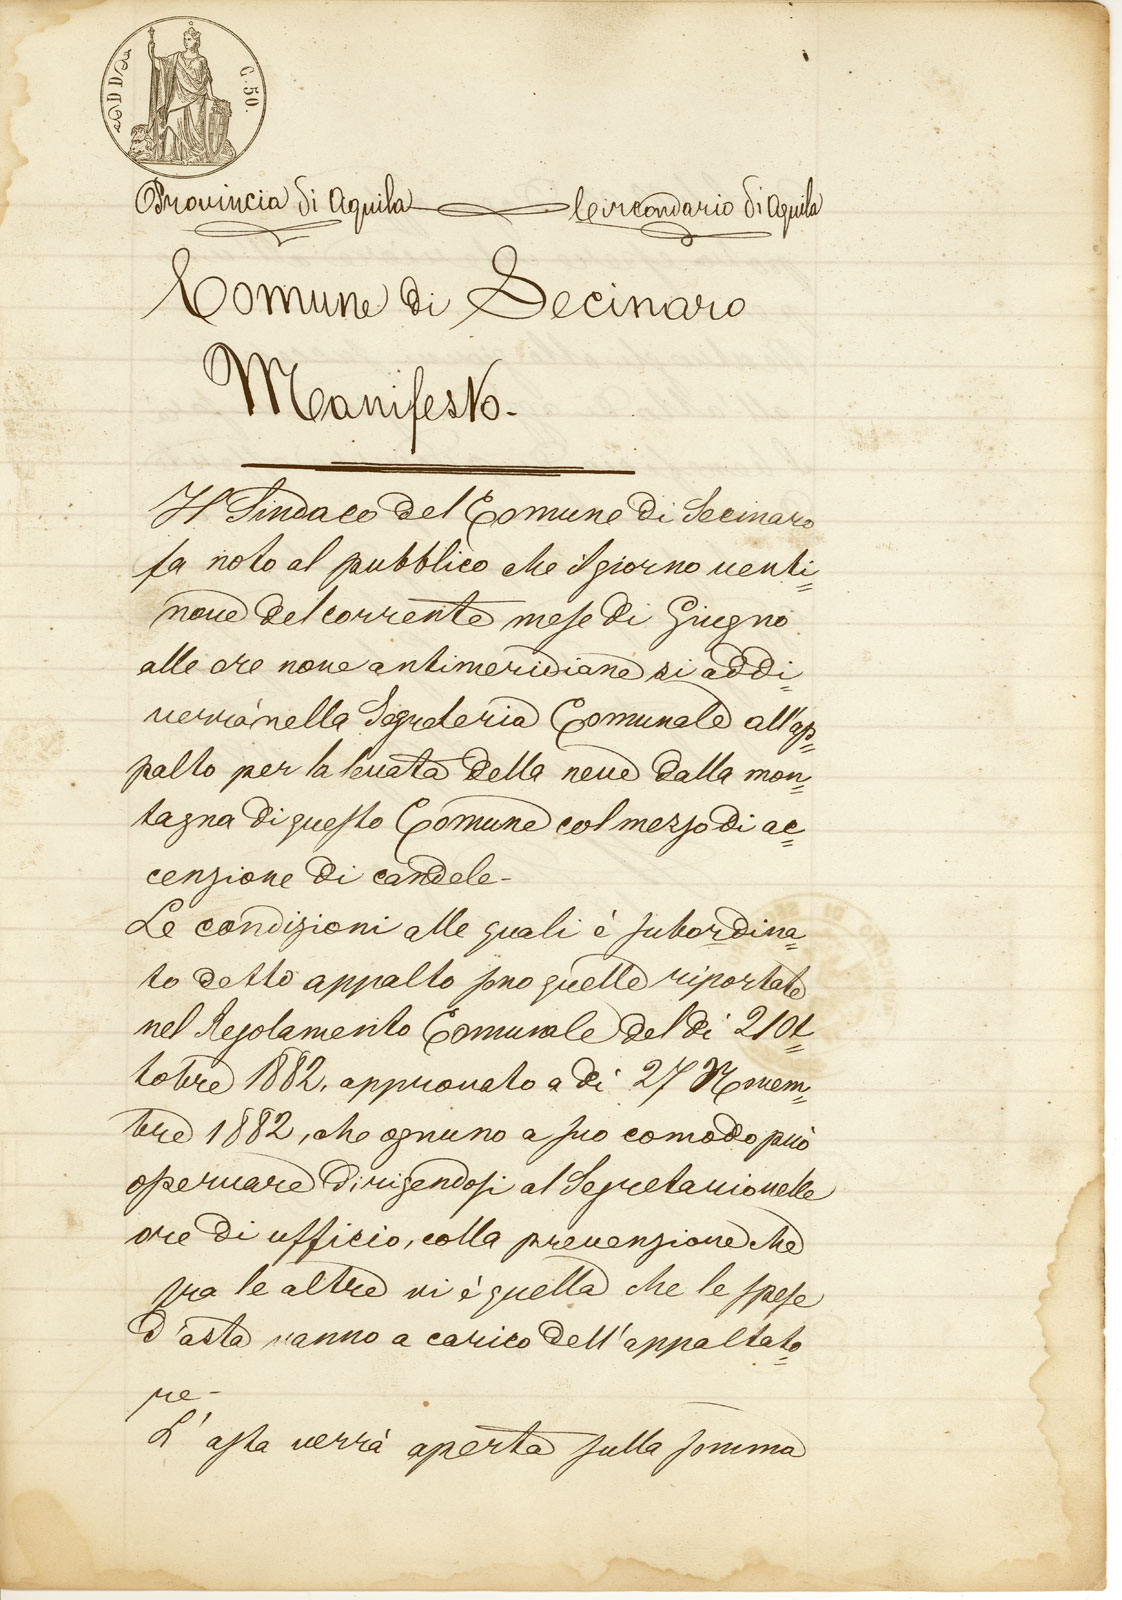 C. 50.
Provincia di Aquila Circondario di Aquila
Comune di Secinaro
Manifesto-
Il Sindaco del Comune di Secinaro
fa noto al pubblico che il giorno venti=
nove del corrente mese di Giugno
alle ore nove antimeridiane si addi=
verrà nella Segreteria Comunale all'ap=
palto per la levata della neve dalla mon=
tagna di questo Comune col mezzo di ac=
cenzione di candele-
Le condizioni alle quali è subordina=
to detto appalto sono quelle riportate
nel Regolamento Comunale del dì 21 Ot=
tobre 1882, approvato a dì 27 Novem=
bre 1882, che ognuno a suo comodo può
osservare dirigendosi al Segretario nelle
ore di ufficio, colla prevenzione che
fra le altre vi è quella che le spese
d'asta vanno a carico dell'appaltato=
re-
L'asta verrà aperta sulla somma